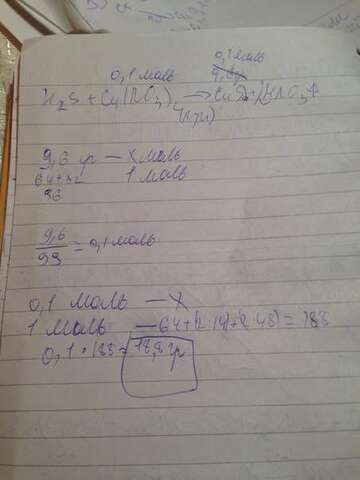 0,1 моль
0,1 моль
H₂S + Cu(NO₃)₂ → CuS↓ + 2HNO₃
9,6 гр — X моль
64+32 1 моль
96
9,6
= 0,1 моль
0,1 моль — X
1 моль — 64+(2·14)+(2·48) = 188
0,1 · 188 = 18,8 гр